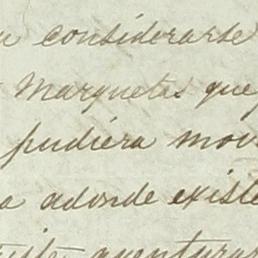 considerarse
Marquetas que
pudiera mov
a adonde existe
aventurar